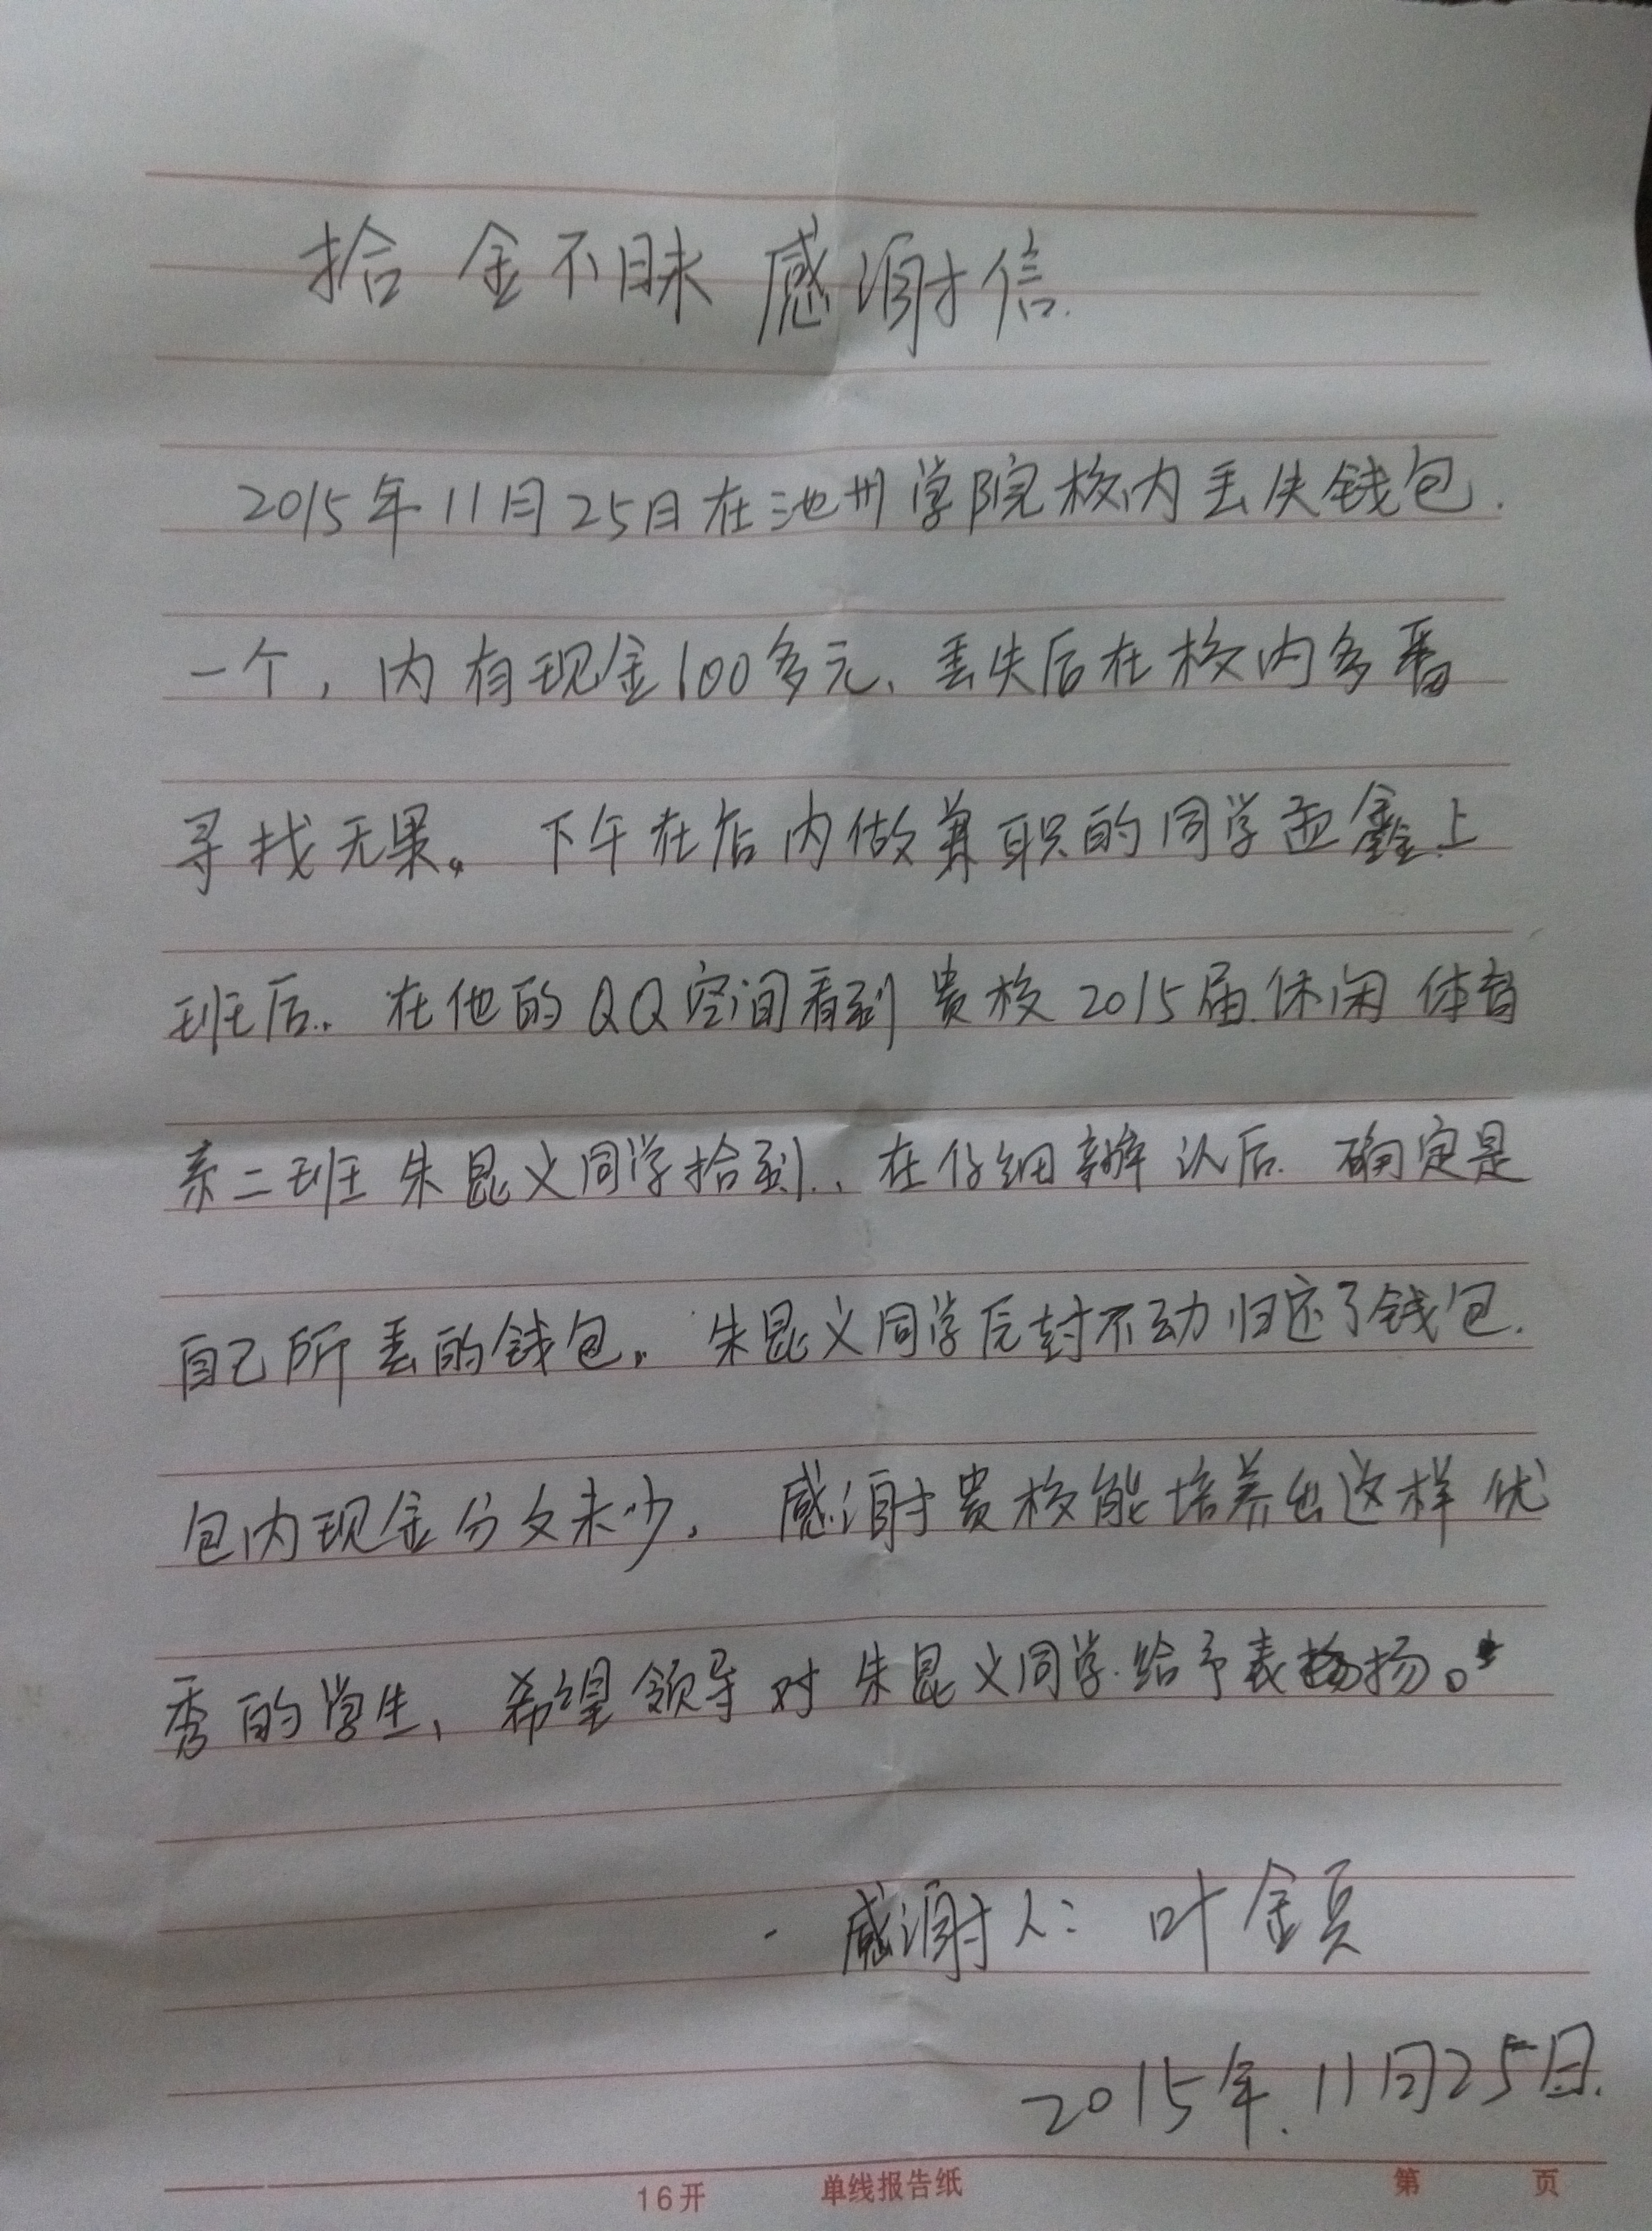 拾金不昧感谢信.
2015年11月25日在池州学院校内丢失钱包.
一个,内有现金600多元、丢失后在校内多番
寻找无果。下午在店内做兼职的同学孟鑫上
班后.、在他的QQ空间看到贵校2015届休闲体育
系二班朱昆义同学拾到、在仔细辨认后.确定是
自己所丢的钱包。朱昆义同学原封不动归还了钱包.
包内现金分文未少.感谢贵校能培养出这样优
秀的学生、希望领导对朱昆义同学给予表扬。
感谢人:叶金
2015年.11月25日.
16开 单线报告纸 第 页